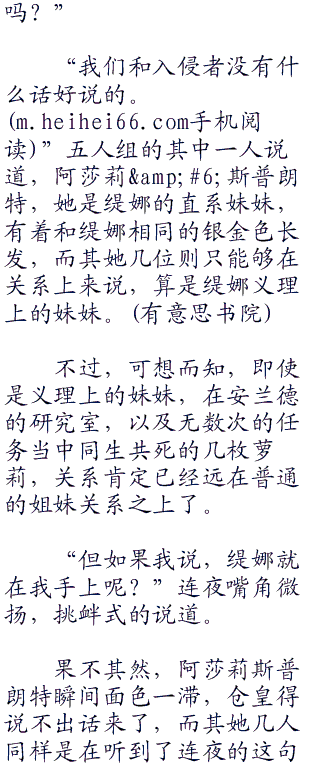 吗？”
“我们和入侵者没有什
么话好说的。
(m.heihei66.com手机阅
读)”五人组的其中一人说
道，阿莎莉&amp;#6;斯普朗
特，她是缇娜的直系妹妹，
有着和缇娜相同的银金色长
发，而其她几位则只能够在
关系上来说，算是缇娜义理
上的妹妹。(有意思书院)
不过，可想而知，即使
是义理上的妹妹，在安兰德
的研究室，以及无数次的任
务当中同生共死的几枚萝
莉，关系肯定已经远在普通
的姐妹关系之上了。
“但如果我说，缇娜就
在我手上呢？”连夜嘴角微
扬，挑衅式的说道。
果不其然，阿莎莉斯普
朗特瞬间面色一滞，仓皇得
说不出话来了，而其她几人
同样是在听到了连夜的这句